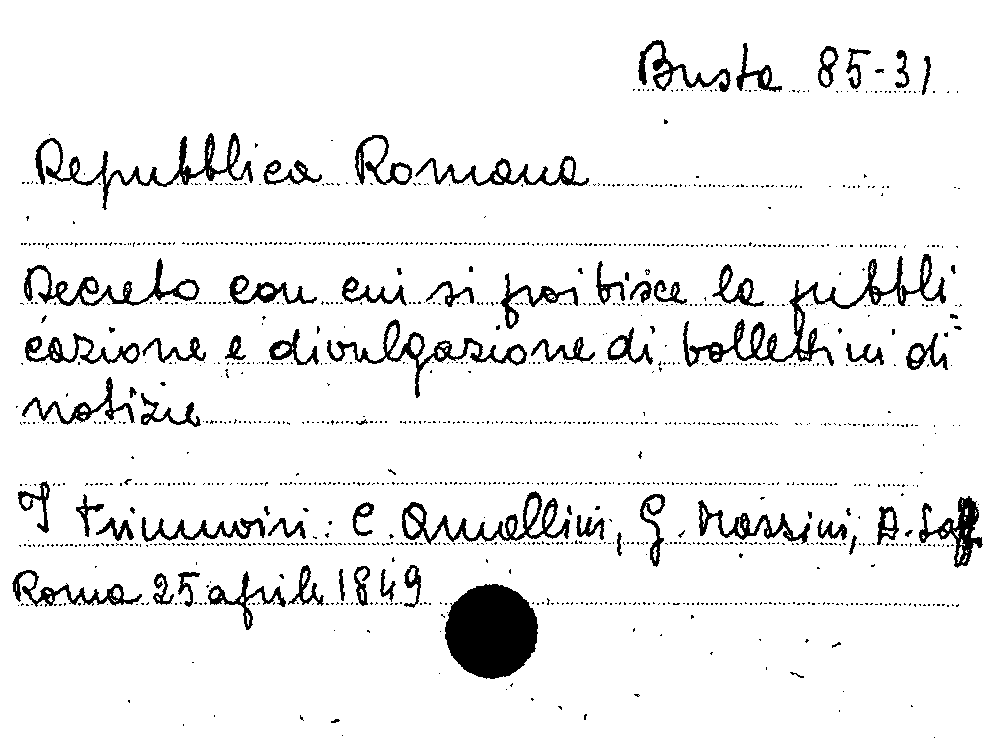 Busta 85-31
Repubblica Romana
Decreto con cui si proibisce la pubbli
cazione e divulgazione di bollettini di
notizie
I triumviri: C. Armellini, G. Mazzini, A. Saffi
Roma 25 aprile 1849